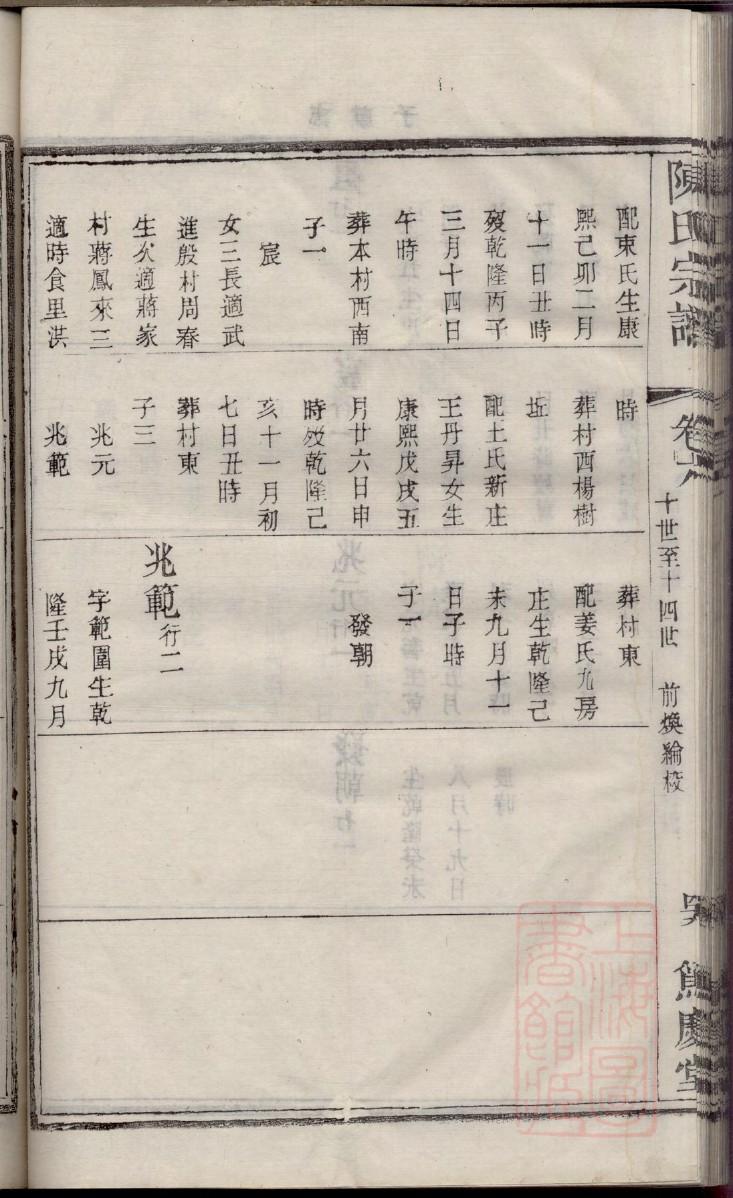 陳氏宗譜
卷六
十世至十四世 前煥綸校
篤慶堂
配東氏生康
熙己卯二月
十一日丑時
歿乾隆丙子
三月十四日
午時
葬本村西南
子一
宸
女三長適武
進殷村周春
生次適蔣家
村蔣鳳來三
適時食里洪
時
葬村西楊樹
坵
配王氏新庄
王丹昇女生
康熙戊戌五
月廿六日申
時歿乾隆己
亥十一月初
七日丑時
葬村東
子三
兆元
兆範
葬村東
配姜氏九房
庄生乾隆己
未九月十一
日子時
子一
發朝
兆範行二
字範圍生乾
隆壬戌九月
上海圖書館藏